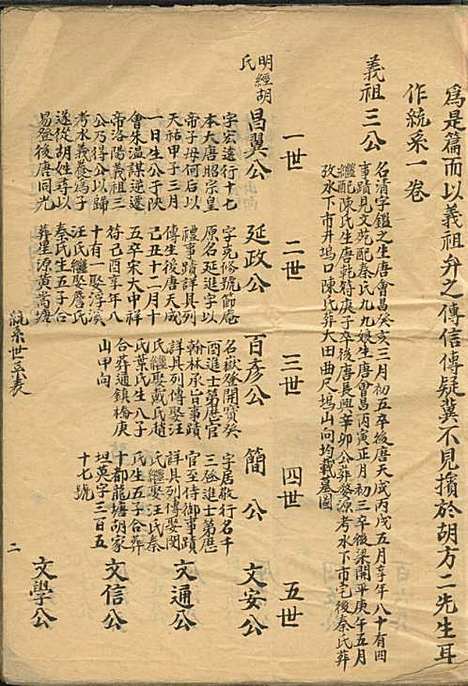 爲是篇而以義祖弁之傳信傳疑冀不見擯於胡方二先生耳
作統系一卷
義祖三公
名清字鑑之生唐會昌癸亥三月初五卒後唐天成丙戌五月享年八十有四
事蹟見文苑配秦氏九九娘生唐會昌丙寅正月初三卒後梁開平庚午五月
繼配陳氏生唐乾符庚子卒後唐長興辛卯公葬婺源考水下市宅後秦氏葬
考水下市井塢口陳氏葬大田曲尺塢山向均載墓圖
一世
二世
三世
四世
五世
明經胡氏
昌翼公
字宏遠行十七
本大唐昭宗皇
帝子母何后以
天祐甲子三月
一日生公于陝
會朱溫謀逆遂
帝洛陽義祖三
公乃得公以歸
考水義養爲子
遂從胡姓尋以
易登後唐同光
延政公
字克脩號節庵
原名延進字以
禮事蹟詳具列
傳生後唐天成
己丑十二月十
五卒宋大中祥
符己酉享年八
十有一娶淳溪
汪氏繼娶詹氏
秦氏生五子合
葬星源黃蒿塘
百彥公
名嶽登開寶癸
酉進士第歷官
翰林承旨事蹟
詳具列傳娶汪
氏繼娶戴氏趙
氏葉氏生八子
合葬通鎮橋庚
山甲向
簡公
字居敬行名千
三登進士第歷
官至侍御事蹟
詳具列傳娶閔
氏繼娶汪氏秦
氏生五子合葬
十都龍塘胡家
坦英字三百五
十七號
文安公
文通公
文信公
文學公
統系世卒表
二